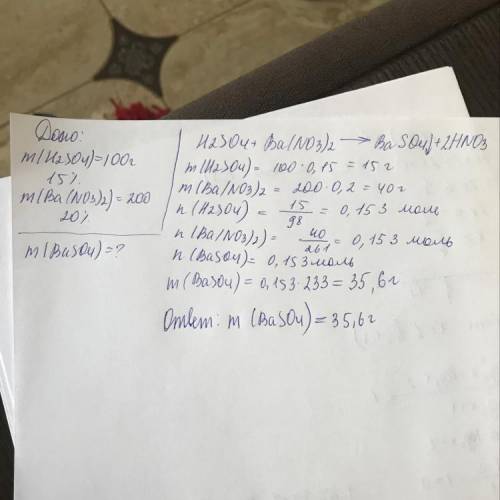 Дано:
m(H2SO4)=100г
15%
m(Ba(NO3)2)=200
20%
m(BaSO4)=?
H2SO4+Ba(NO3)2⟶BaSO4↓+2HNO3
m(H2SO4)=100·0,15=15г
m(Ba(NO3)2=200·0,2=40г
n(H2SO4)=15/98=0,153 моль
n(Ba(NO3)2)=40/261=0,153 моль
n(BaSO4)=0,153моль
m(BaSO4)=0,153·233=35,6г
Ответ: m(BaSO4)=35,6г